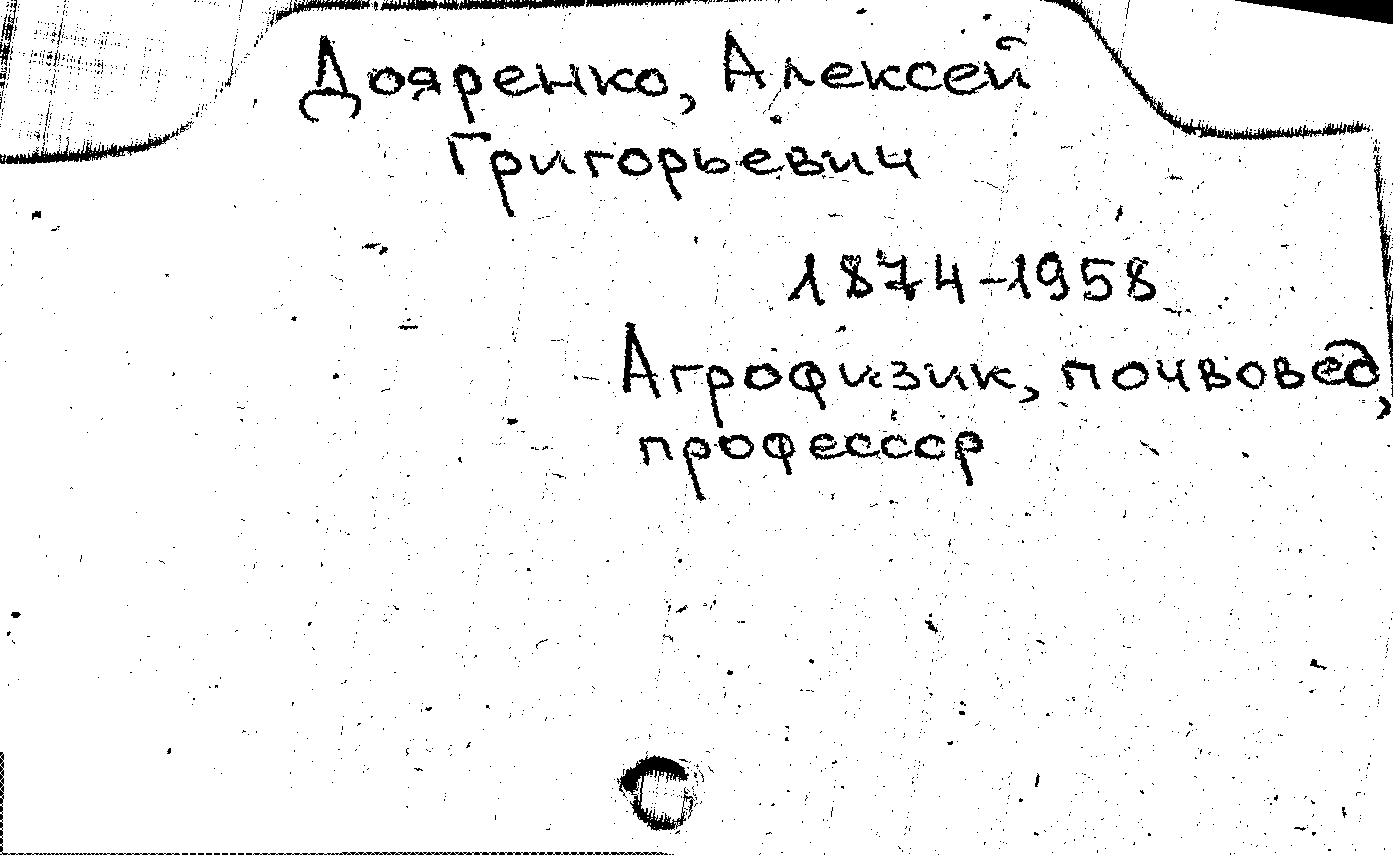 Дояренко, Алексей
Григорьевич
1874-1958
Агрофизик, почвовед,
профессор